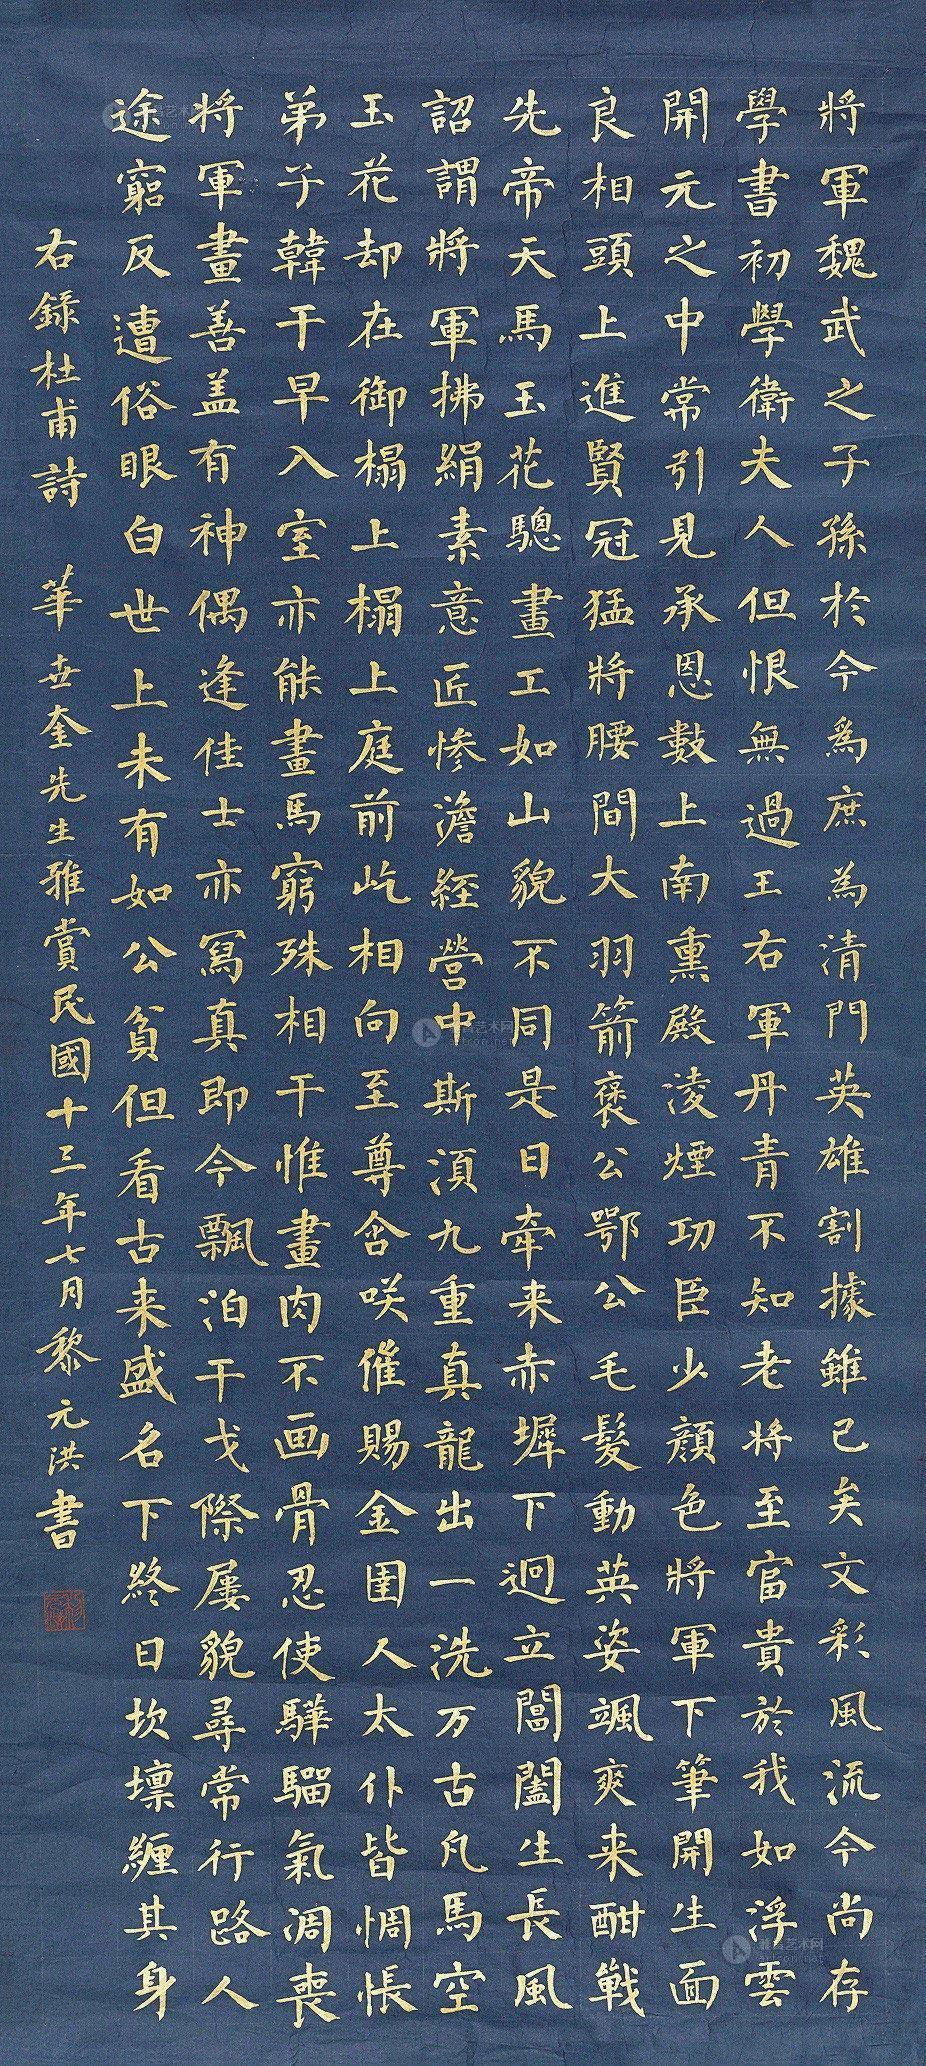 將軍魏武之子孫於今爲庶為清門英雄割據雖已矣文彩風流今尚存
學書初學衛夫人但恨無過王右軍丹青不知老將至富貴於我如浮雲
開元之中常引見承恩數上南熏殿淩煙功臣少顏色將軍下筆開生面
良相頭上進賢冠猛將腰間大羽箭褒公鄂公毛髮動英姿颯爽来酣戰
先帝天馬玉花驄畫工如山貌不同是日牽来赤墀下迥立閶闔生長風
詔謂將軍拂絹素意匠惨澹経營中斯湏九重真龍出一洗万古凡馬空
玉花却在御榻上榻上庭前屹相向至尊含咲催賜金圉人太仆皆惆悵
弟子韓干早入室亦能畫馬窮殊相干惟畫肉不画骨忍使驊騮氣凋喪
将軍畫善盖有神偶逢佳士亦寫真即今飄泊干戈際屢貌尋常行路人
途窮反遭俗眼白世上未有如公貧但看古来盛名下終日坎壈纏其身
右錄杜甫詩 華卋奎先生雅賞民國十三年七月黎元洪書